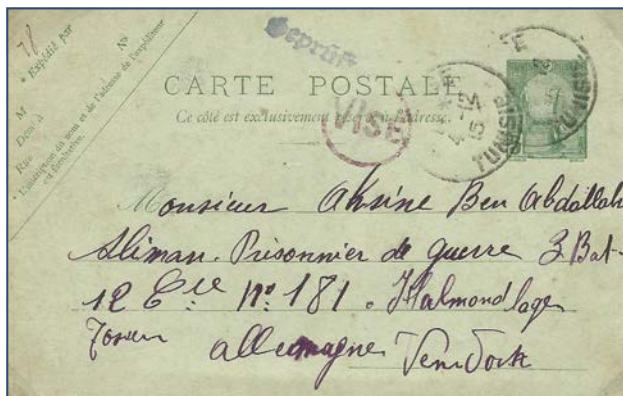 78
* Expédié par
N°
M
Dem<sup>t</sup> à
Rue
* L'inscription du nom et de l'adresse de l'expéditeur
est facultative.
Geprüft
CARTE POSTALE
Ce côté est exclusivement réservé à l'adresse.
VISÉ
TUNISIE
TUNISIE
Monsieur Aksine Ben Abdallah
Sliman. Prisonnier de guerre 3 Bat-
12 C<sup>ie</sup> N° 181. Halmondlager
allemagne